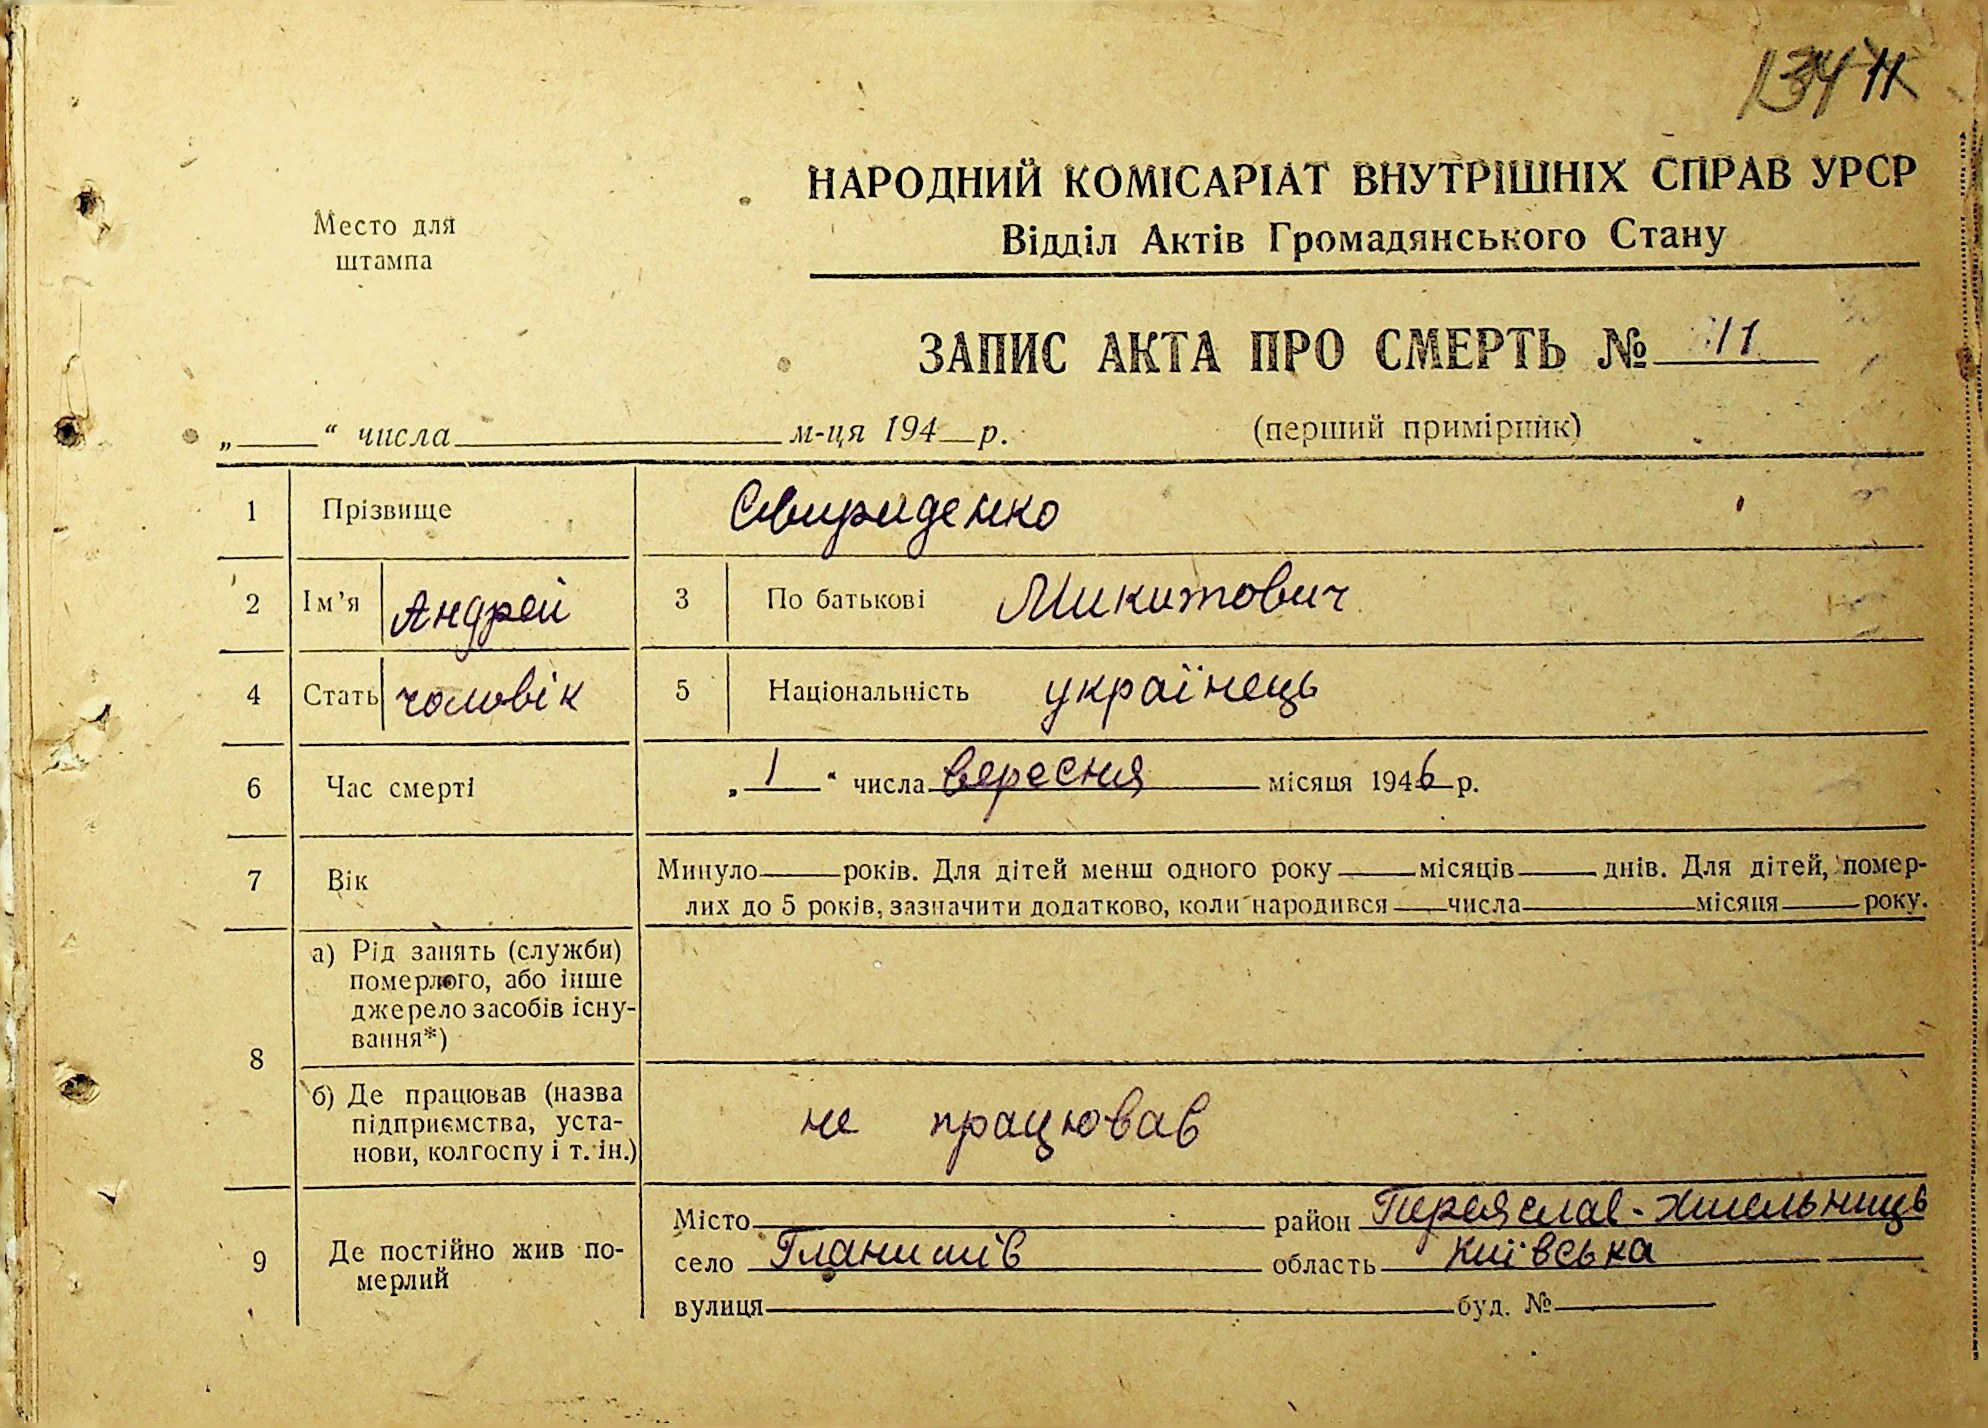 11
НАРОДНИЙ КОМІСАРІАТ ВНУТРІШНІХ СПРАВ УРСР
Відділ Актів Громадянського Стану
Место для
штампа
ЗАПИС АКТА ПРО СМЕРТЬ № 11
„ “ числа м-ця 194 р. (перший примірник)
1 Прізвище Свириденко
2 Ім’я Андрей 3 По батькові Микитович
4 Стать чоловік 5 Національність українець
6 Час смерті „ 1 “ числа вересня місяця 1946 р.
7 Вік Минуло років. Для дітей менш одного року місяців днів. Для дітей, помер-
лих до 5 років, зазначити додатково, коли народився числа місяця року.
8
а) Рід занять (служби)
померлого, або інше
джерело засобів існу-
вання*)
б) Де працював (назва
підприємства, уста-
нови, колгоспу і т. ін.)
не працював
9 Де постійно жив по-
мерлий
Місто район Переяслав-Хмельниць
село Гланишів область Київська
вулиця буд. №